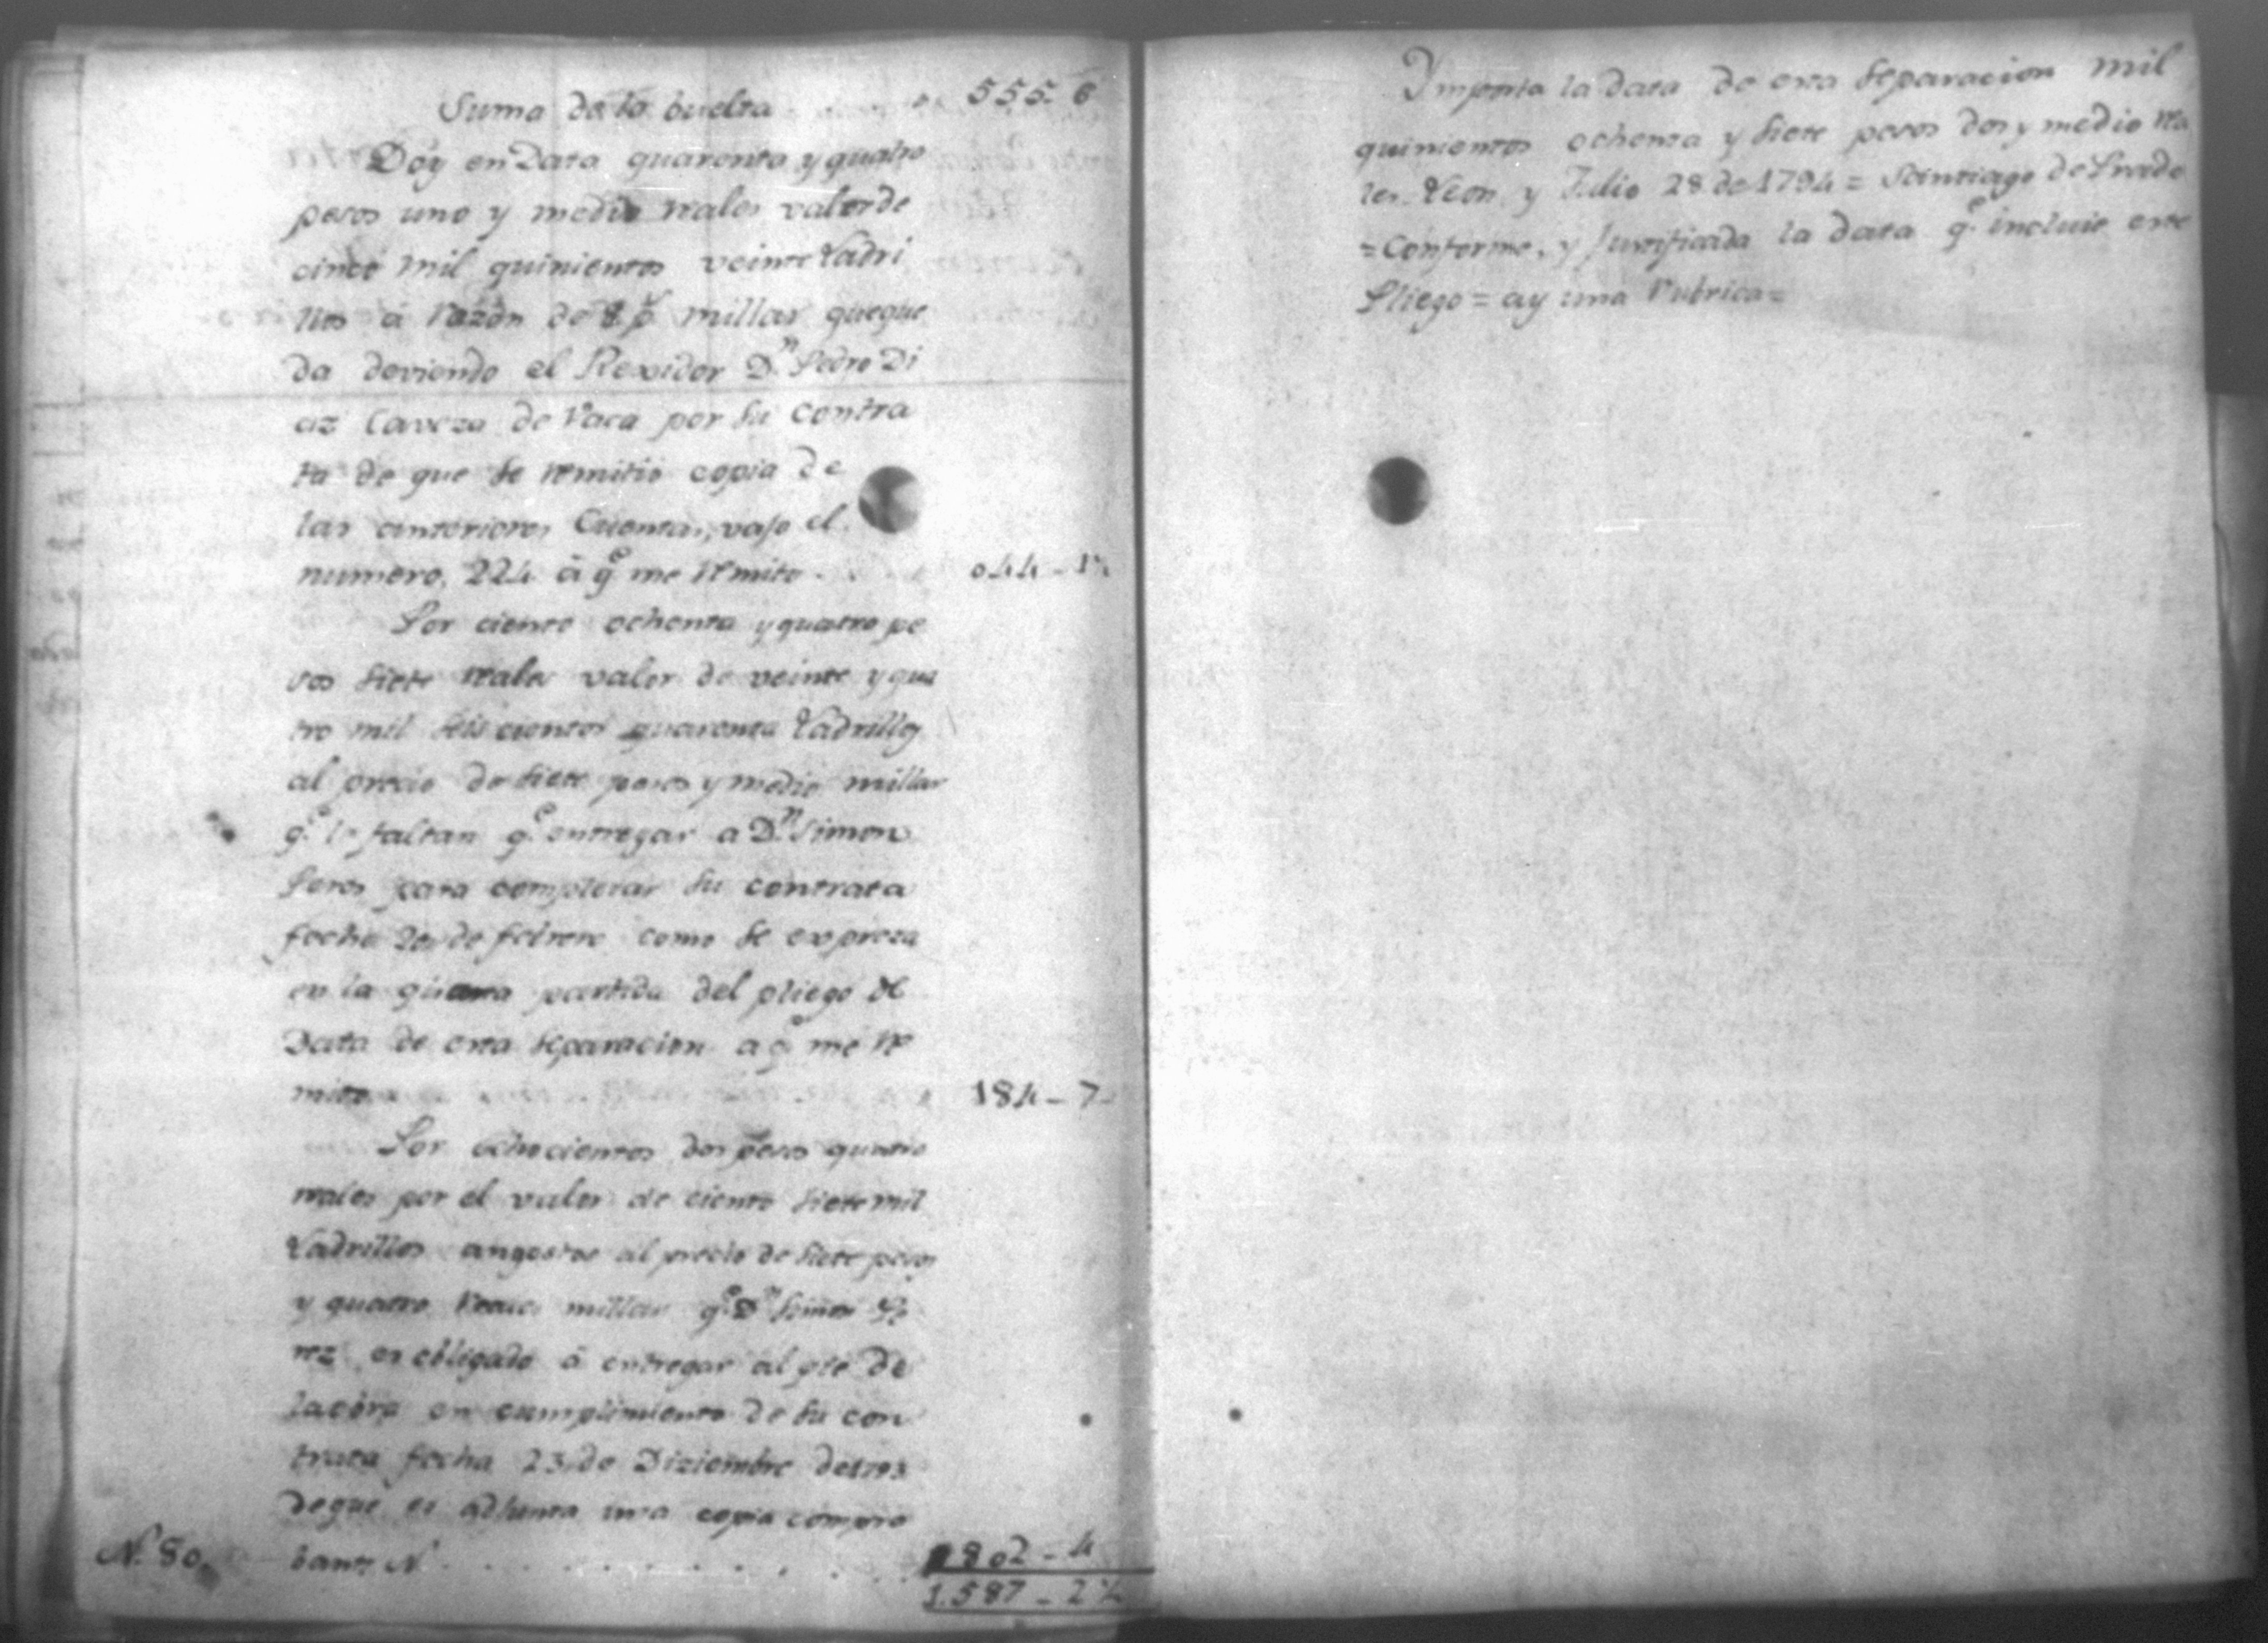 Suma de la buelta 555. 6
Doy en Data quarenta y quatro
pesos uno y medio reales valor de
cinco mil quinientos veinte Ladri
llos á razon de 8 p.s millar que que
da deviendo el Rexidor D.n Pedro Di
az Caveza de Vaca por su contra
ta de que se remitio copia de
las anteriores Cuentas, vajo el
numero, 224 á q.e me remito 044 - 1½
Por ciento ochenta y quatro pe
sos siete reales valor de veinte y qua
tro mil seiscientos quarenta Ladrillos
al precio de siete pesos y medio millar
q.e le faltan q.e entregar a D.n Simon
Peres para completar su contrata
fecha de febrero como se expreza
en la partida del pliego de
Data de esta separacion a q.e me re
mito 184 - 7
Por ochocientos dos pesos quatro
reales por el valor de ciento siete mil
Ladrillos angostos al precio de siete pesos
y quatro reales millar q.e D.n Simon Pe
rez es obligado á entregar al pie de
la obra en cumplimiento de su con
trata fecha 23 de Diziembre de 1793
de que es adjunta una copia compro
N. 80. bante N. 802 - 4
1.587 - 2½
Ymporta la data de esta separacion mil
quinientos ochenta y siete pesos dos y medio rea
les. Leon, y Julio 28 de 1794 = Santiago de Prado
= Conforme, y Justificada la data q.e incluie este
Pliego = ay una Rubrica =